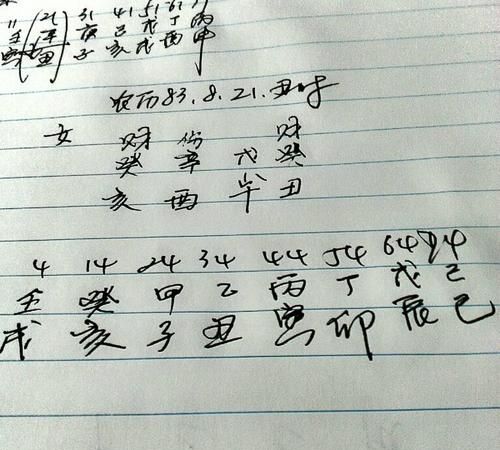 11 21 31 41 51 61
壬 辛 庚 己 戊 丁 丙
寅 丑 子 亥 戌 酉 申
农历83.8.21.丑时
女 财 伤 财
癸 辛 戊 癸
亥 酉 午 丑
4 14 24 34 44 54 64 74
壬 癸 甲 乙 丙 丁 戊 己
戌 亥 子 丑 寅 卯 辰 巳